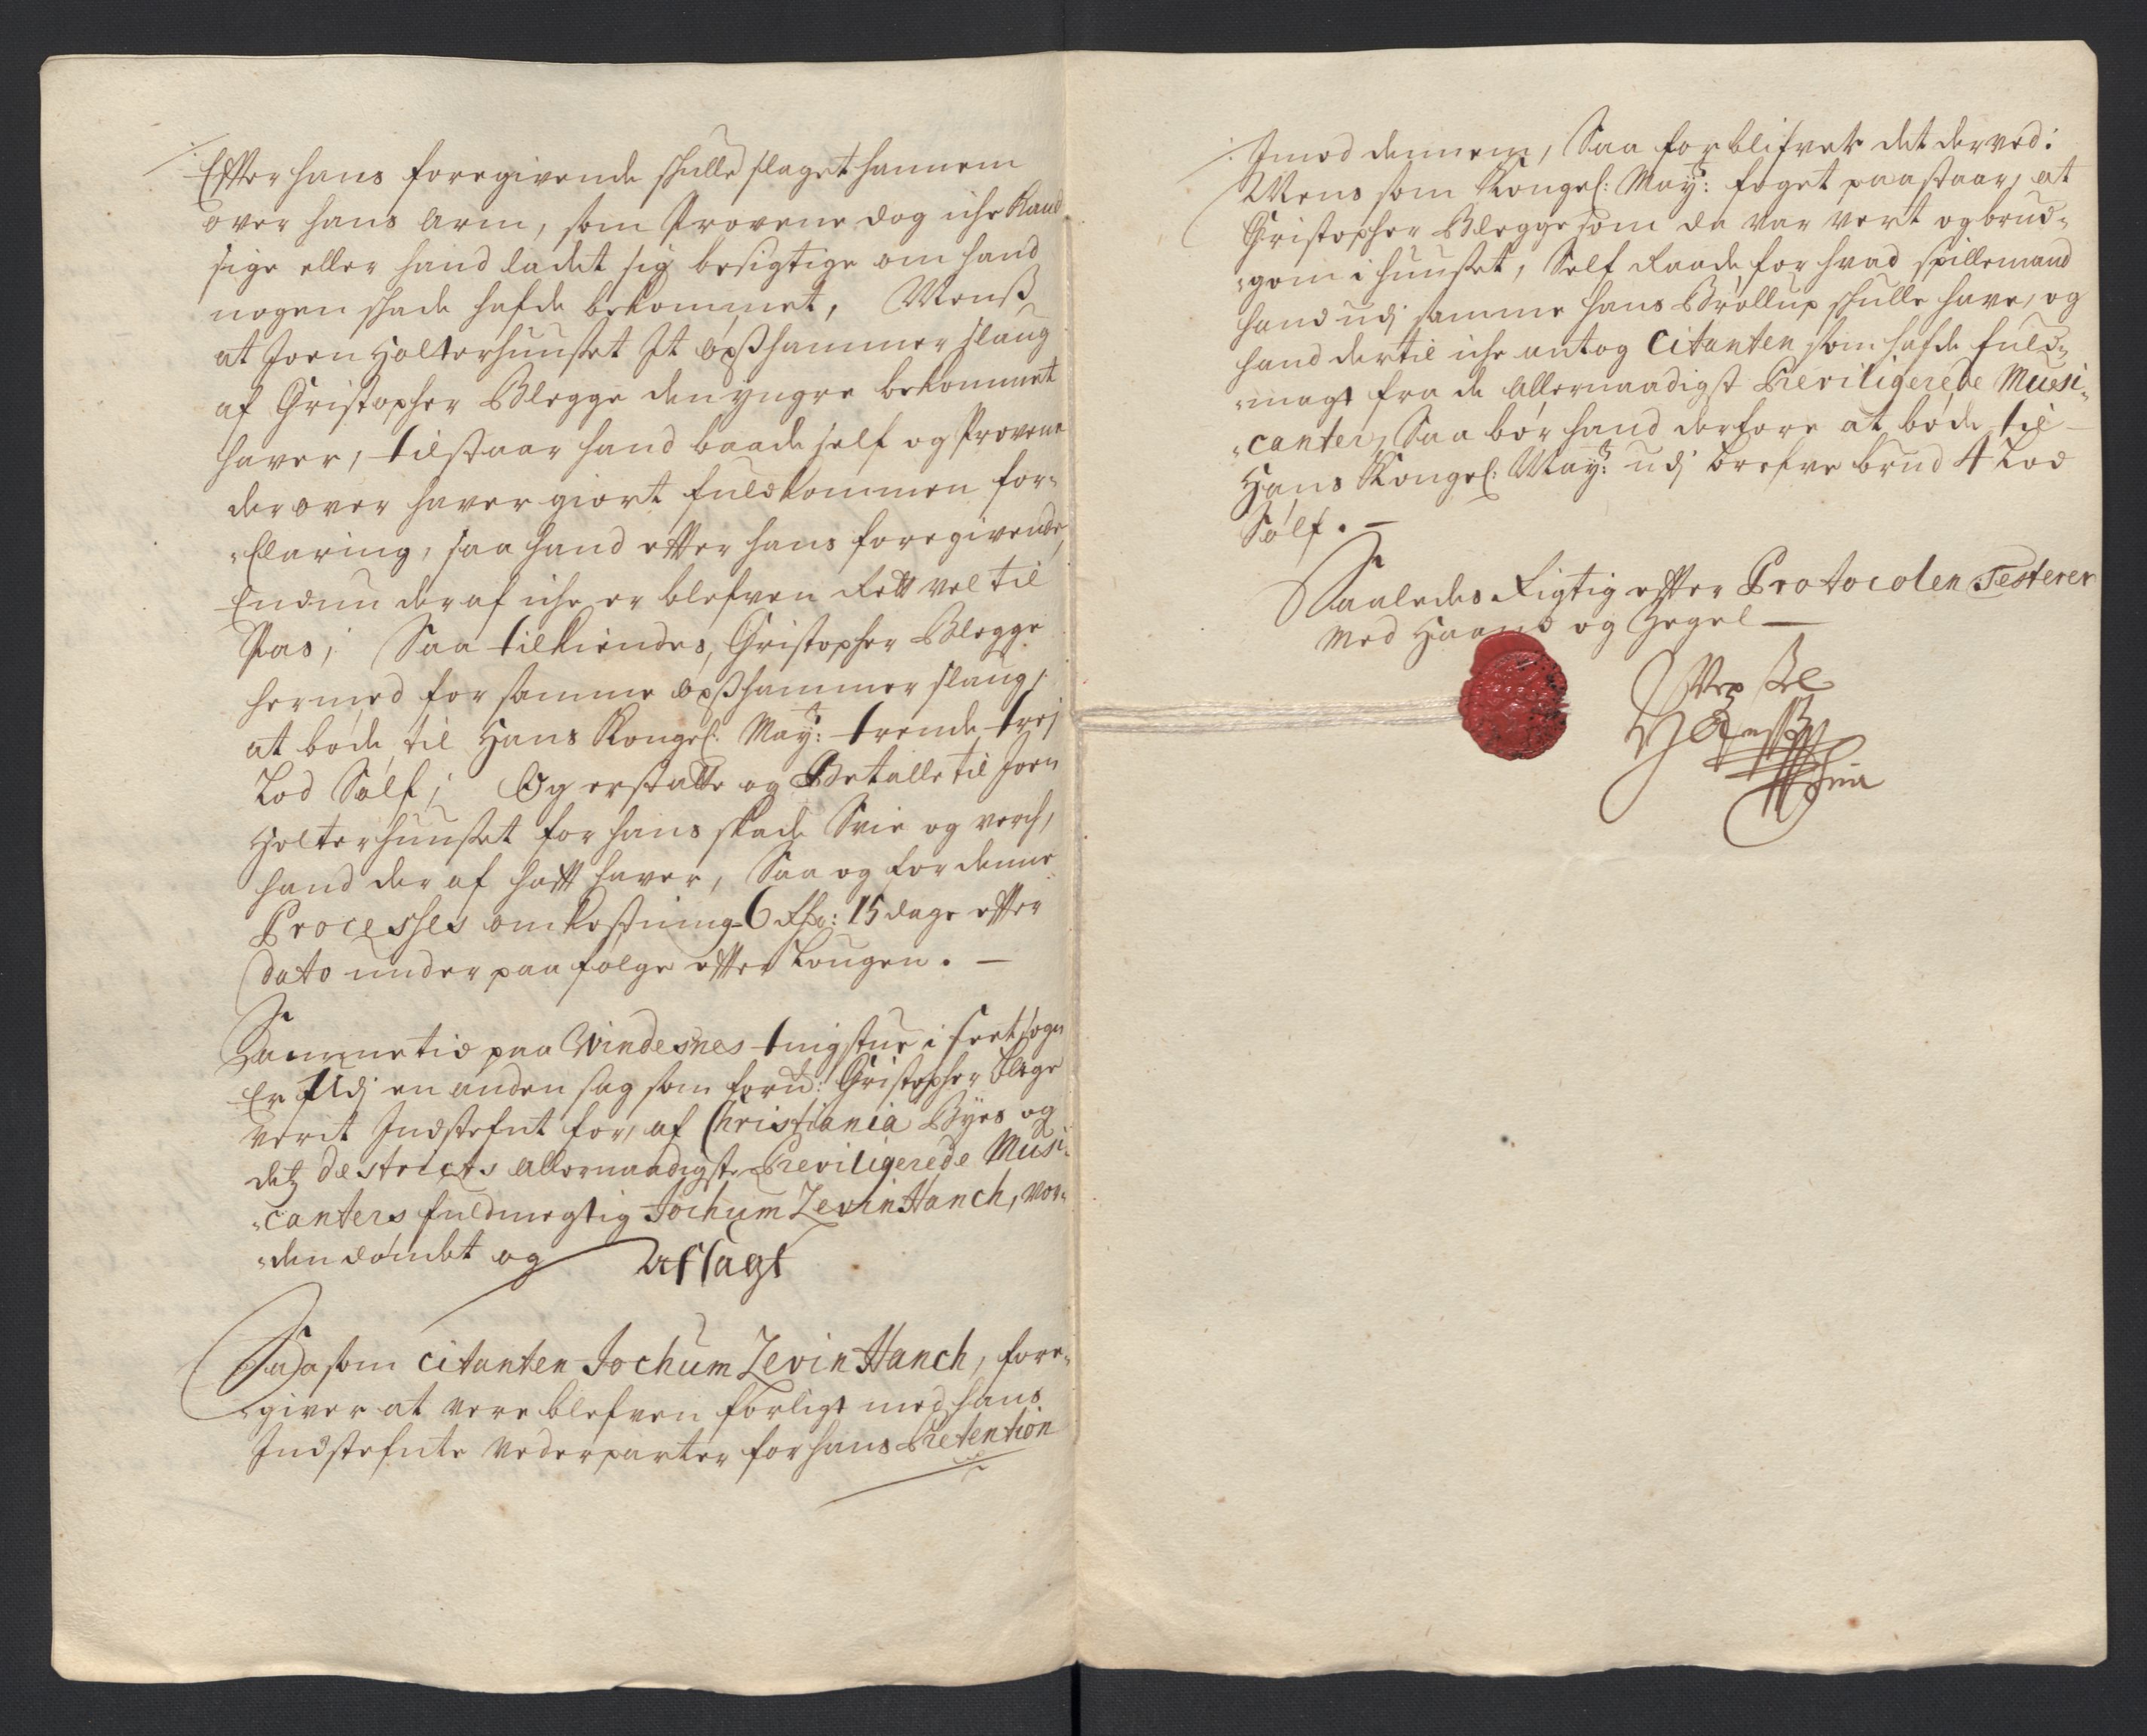 Efter hans foregivende skulle slaget hannem
over hans arm, som Provene dog iche kand
sige eller hand ladet sig besigtige om hand
nogen skade hafde bekommet, Menß
at Joen Holterhuuset It øxßhammer slaug
af Christopher Blegge den yngre bekommet
haver, tilstaar hand baade self og Provene
der over haver giort fuldkommen for-
-klaring, saa hand efter hans foregivende,
Endnu der af iche er blefven Rett vel til
Pas; Saa tilkiendes, Christopher Blegge
hermed for samme øxßhammer slaug,
at bøde til Hans Kongel: May: trende trej
Lod Sølf; Og erstatte og Betalle til Joen
Holterhuuset for hans skade Svie og verch,
hand der af hatt haver, Saa og for denne
Processes omkostning 6 Rdr: 15 dage efter
dato under paafølge efter Lougen. —
Sammetid paa Windesnes tingstue i sogn
Er Udj en anden sag som forn: Christopher Blege
verit Indstefnt for, af Christiania Byes og
detz destricts allernaadigste Previligerede Musi-
-canters fuldmegtig Jochum Levin Hanch, vor-
-den dømbt og Afsagt
Saasom Citanten Jochum Levin Hanch, fore-
-giver at vere blefven forligt med hans
Indstefnte vederparter for hans Prætention
Imod dennem, Saa forblifver det derved:
Mens som Kongel: May: foget paastaar, at
Christopher Blegge som da var vert og brud-
-gom i huuset, Self Raade for hvad spillemand
hand udj samme hans Brøllup skulle have, og
hand dertil iche antog Citanten som hafde fuld-
-magt fra de allernaadigst Previligerede Musi-
-canter, Saa bør hand derfore at bøde til
Hans Kongel: May: udj brefve brud 4 Lod
Sølf. —
Saaledes Rigtig efter Protocolen Testerer
Med Haand og Zegel —